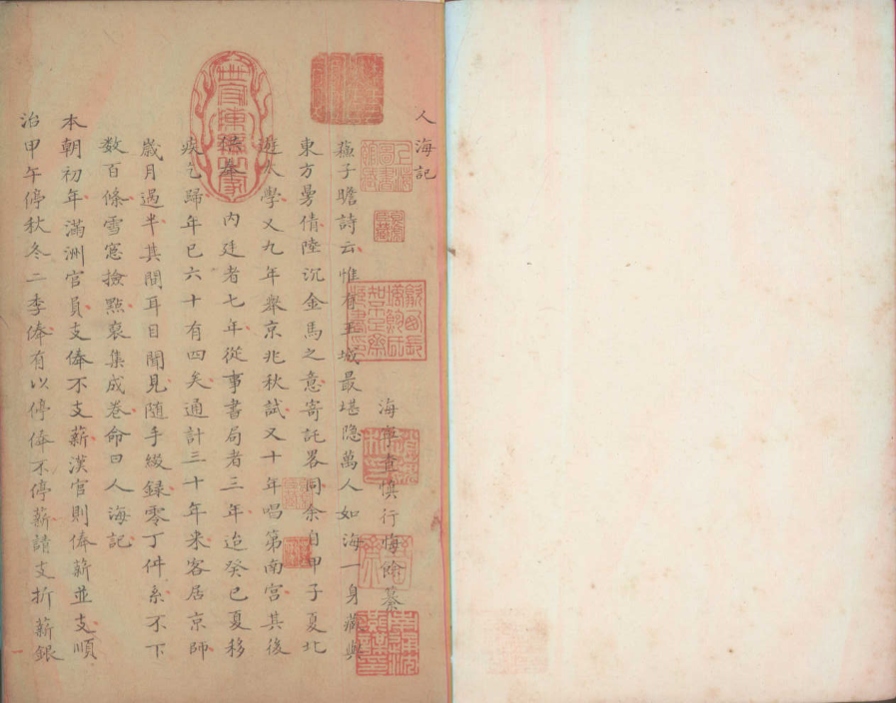 人海記
海寧查慎行悔餘纂
蘇子瞻詩云惟有王城最堪隱萬人如海一身藏與
東方曼倩陸沉金馬之意寄託畧同余自甲子夏北
遊太學又九年舉京兆秋試又十年唱第南宮其後
供奉 內廷者七年從事書局者三年迨癸巳夏移
疾乞歸年已六十有四矣通計三十年来客居京師
歲月過半其間耳目聞見隨手綴録零丁件系不下
數百條雪窓撿點裒集成卷命曰人海記
本朝初年滿洲官員支俸不支薪漢官則俸薪並支順
治甲午停秋冬二季俸有以停俸不停薪請支折薪銀
世守陳編之家
上海圖書館藏
歙西長塘鮑氏知不足齋藏書印